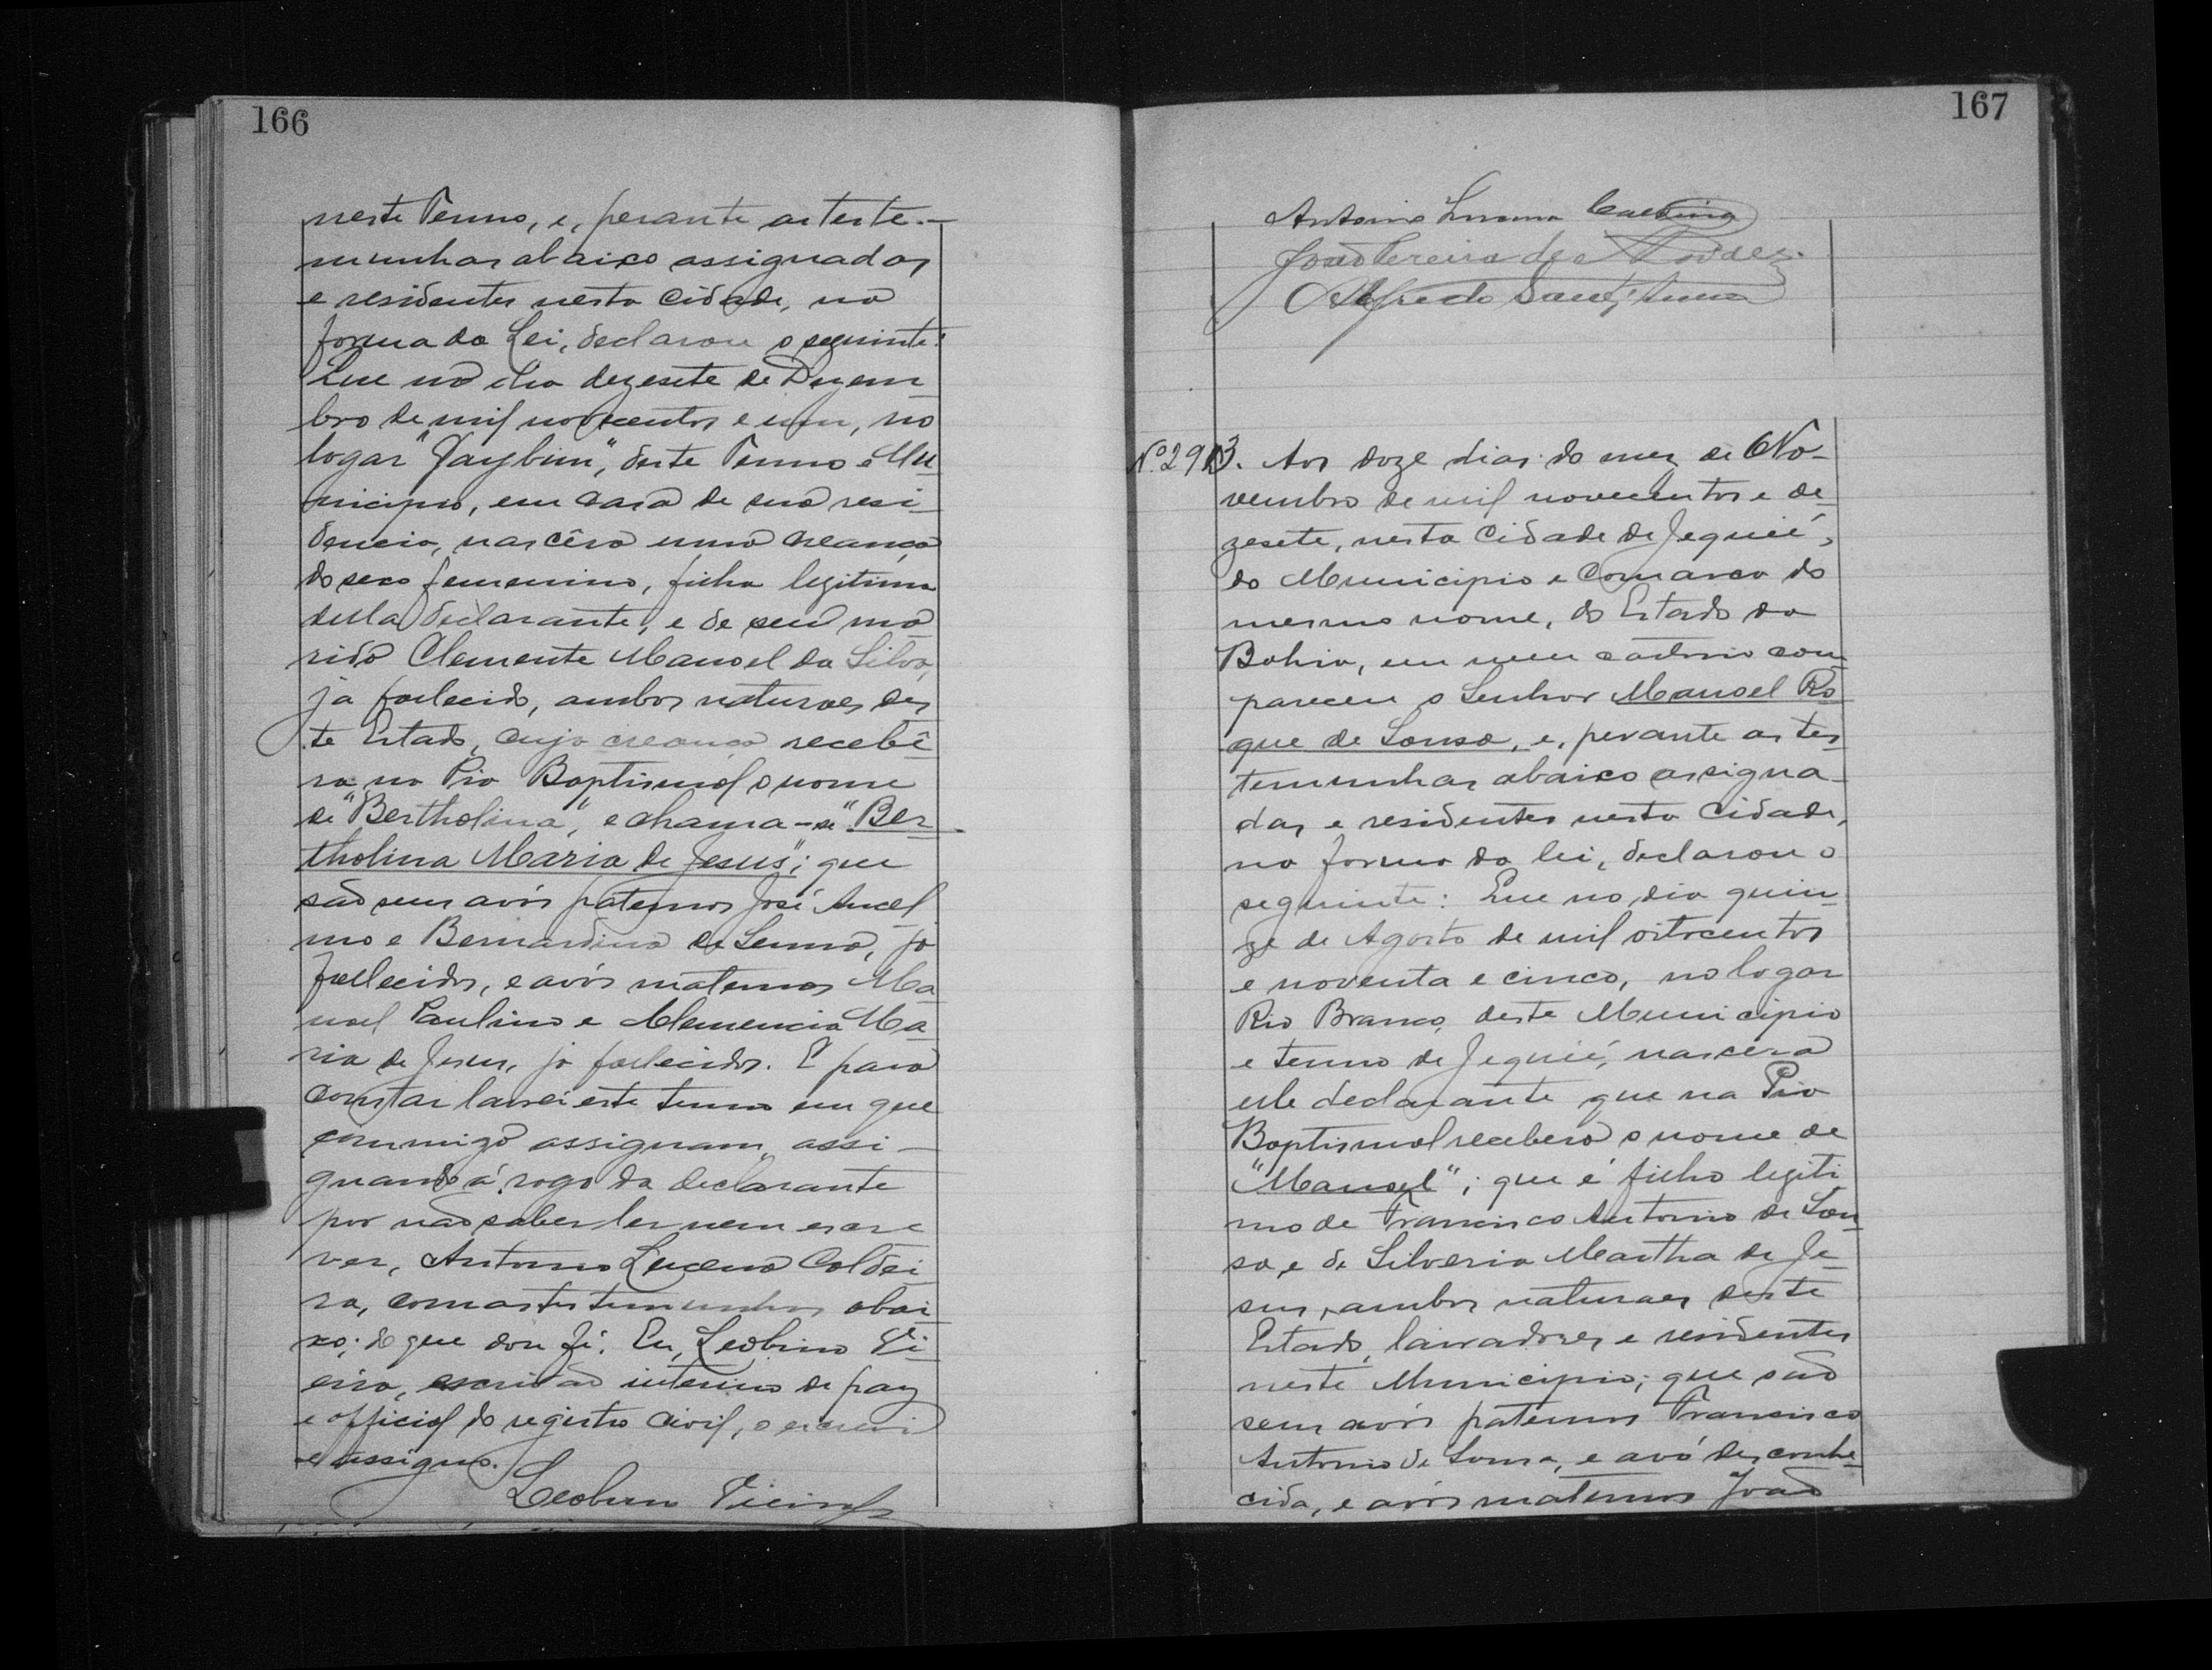 166
neste Termo, e, perante as teste-
munhas abaixo assignadas
e residentes nesta cidade, na
forma da Lei, declarou o seguinte:
Que no dia dezesete de Dezem-
bro de mil novecentos e um, no
logar "Jaybim", deste Termo e Mu-
nicipio, em casa de sua resi-
dencia, nascêra uma creança
do sexo femenino, filha legitima
della declarante, e de seu ma
rido Clemente Manoel da Silva,
já fallecido, ambos naturaes des
te Estado, cuja creança recebê
ra na Pia Baptismal o nome
de "Bertholina", e chama-se "Ber-
tholina Maria de Jesus"; que
são seus avós paternos José Ancel
mo e Bernardina de Senna, já
fallecidos, e avós maternos Ma-
noel Paulino e Clemencia Ma-
ria de Jesus, já fallecidos. E para
constar lavrei este termo em que
commigo assignam, assi-
gnando á rogo da declarante
por não saber ler nem escre
ver, Antonio Lucena Caldei-
ra, com as testemunhas abai
xo; do que dou fé. Eu, Leobino Vi-
eira, escrivão interino de paz
e official do registro civil, o escrevi
e assigno.
Leobino Vieira
167
Antonio Lucena Caldeira
João Pereira de
Alfredo Sant'Anna
Nº 293. Aos doze dias do mez de No-
vembro de mil novecentos e de-
zesete, nesta Cidade de Jequié,
do Municipio e Comarca do
mesmo nome, do Estado da
Bahia, em meu cartorio com
pareceu o Senhor Manoel Ro
que de Sousa, e, perante as tes
temunhas abaixo assigna-
das e residentes nesta Cidade,
na forma da lei, declarou o
seguinte: Que no dia quin-
ze de Agosto de mil oitocentos
e noventa e cinco, no logar
Rio Branco, deste Municipio
e termo de Jequié, nascêra
elle declarante que na Pia
Baptismal recebera o nome de
"Manoel"; que é filho legiti
mo de Francisco Antonio de Sou-
sa, e de Silveria Martha de Je-
sus, ambos naturaes deste
Estado, lavradores e residentes
neste Municipio; que são
seus avós paternos Francisco
Antonio de Sousa, e avó desconhe-
cida, e avós maternos João